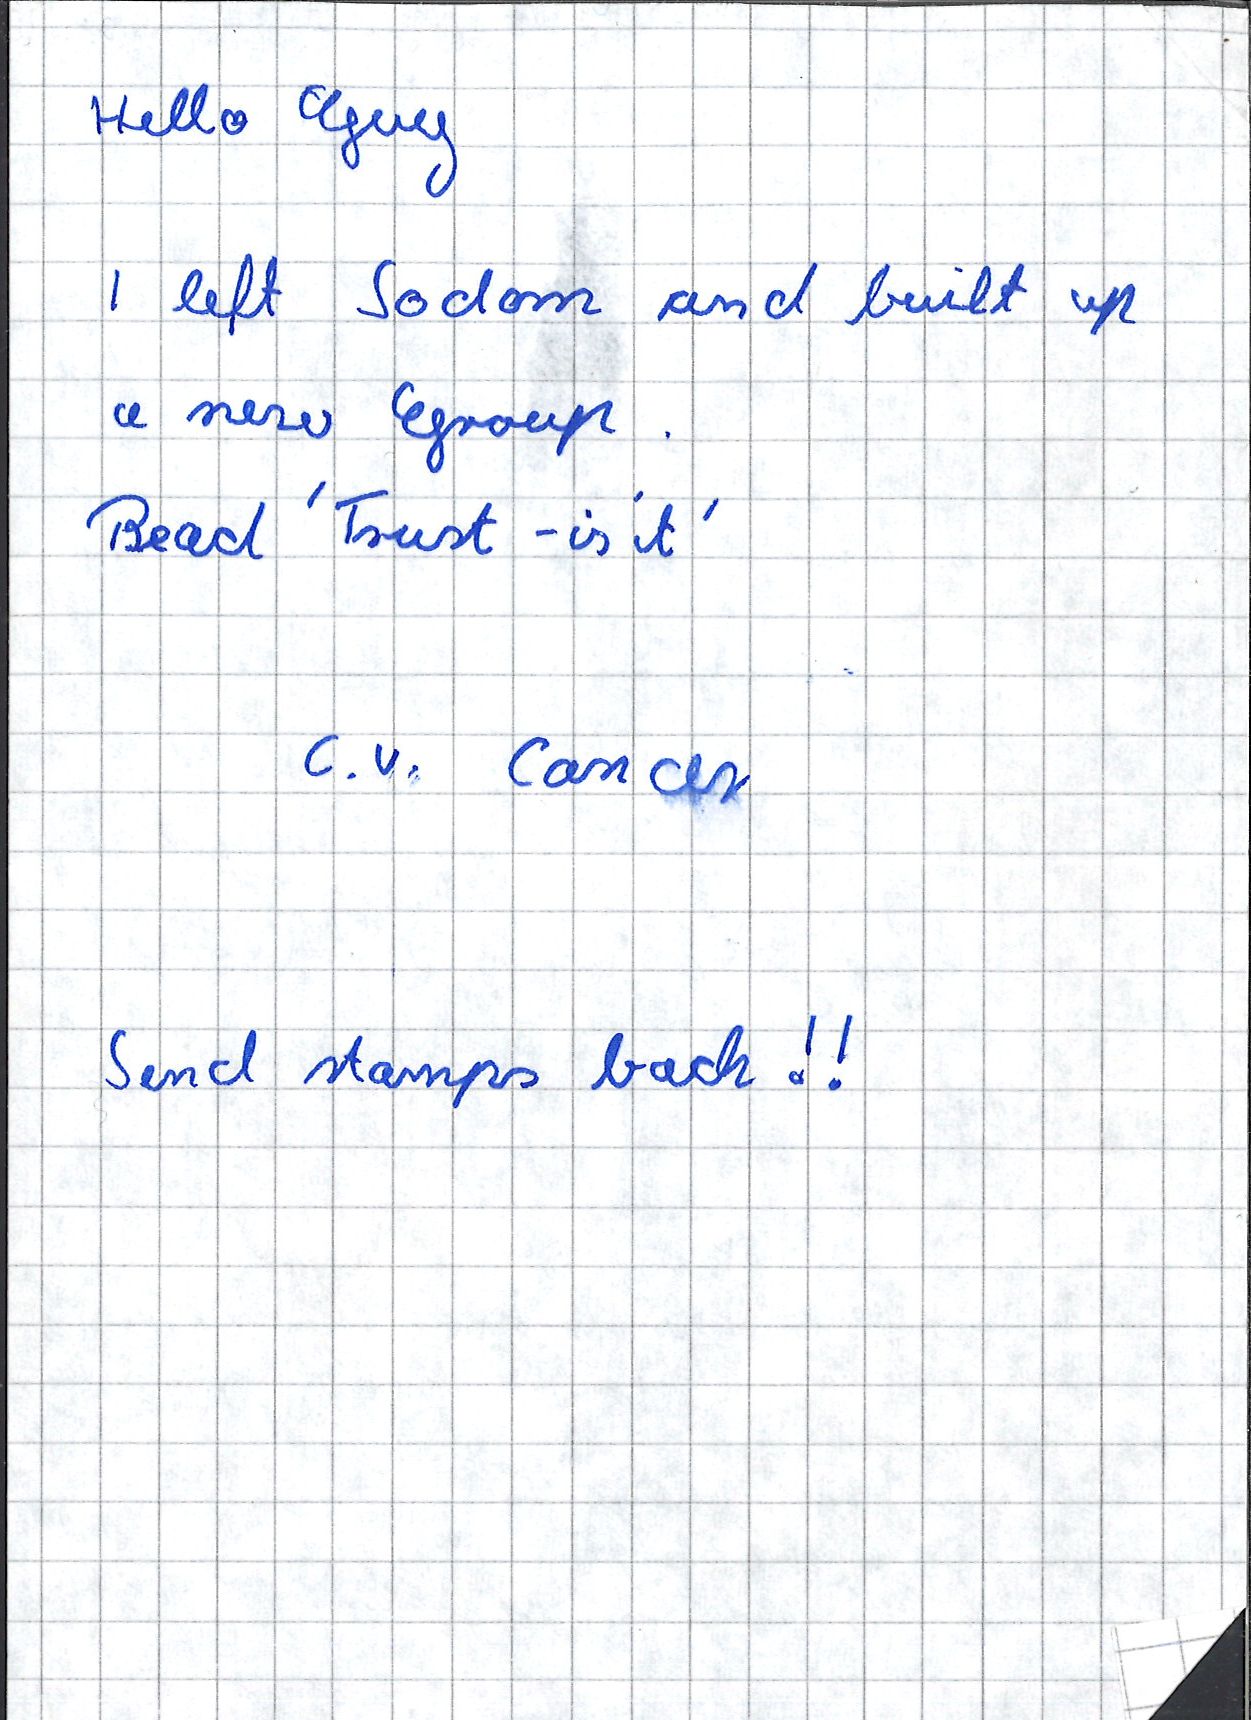 Hello Eguy
I left Sodom and built up
a new Egroup.
Read 'Trust-is it'
C.V. Cancer
Send stamps back!!